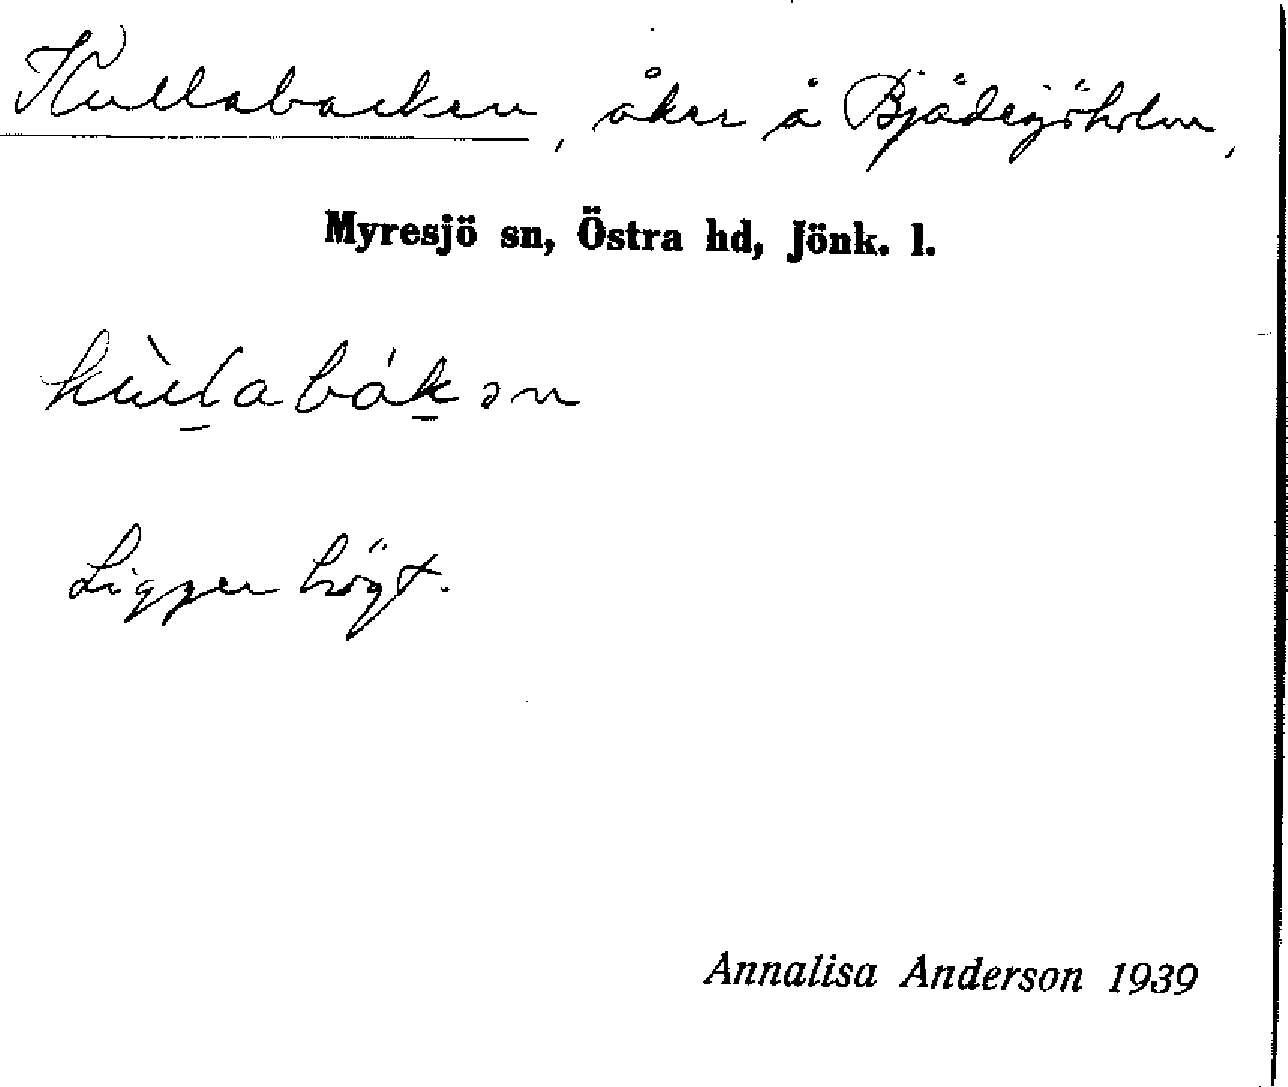 Kullabacken, åker å Bjädesjöholm,
Myresjö sn, Östra hd, Jönk. l.
kùl̠abák̠ən
Ligger högt.
Annalisa Anderson 1939